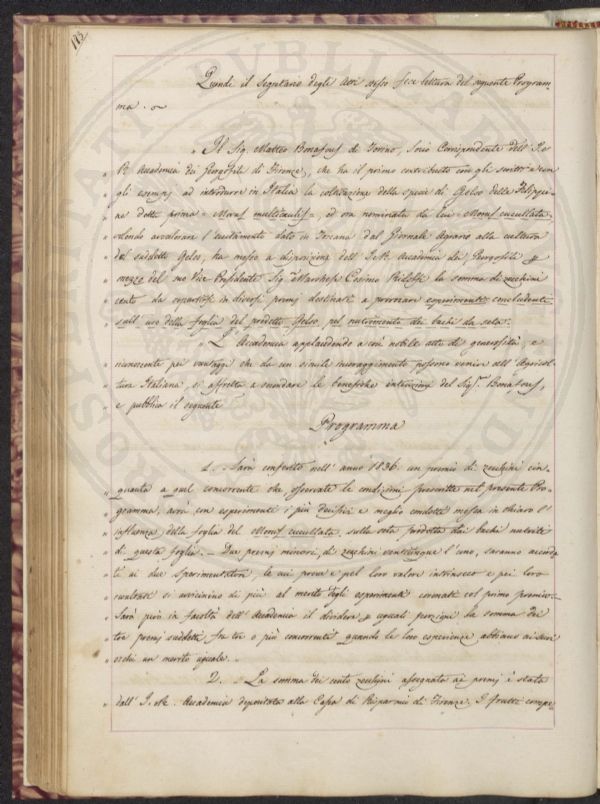 113
Quindi il Segretario degli Atti stesso fece lettura del seguente Program-
ma.
" Il Sig. Matteo Bonafous di Torino, Socio Corrispondente dell' I. e
" R. Accademia dei Georgofili di Firenze, che ha il primo contribuito con gli scritti e con
" gli esempj ad introdurre in Italia la coltivazione della specie di Gelso delle Filippi-
" ne detta prima = Morus multicaulis =, ed ora nominata da lui = Morus cucullata,
" volendo avvalorare l' eccitamento dato in Toscana dal Giornale Agrario alla cultura
" del suddetto Gelso, ha messo a disposizione dell' I. e R. Accademia dei Georgofili p
" mezzo del suo Vice Presidente Sig. Marchese Cosimo Ridolfi la somma di zecchini
" cento da repartirsi in diversi premj destinati a provocare esperimenti concludenti
" sull' uso della foglia del predetto Gelso, pel nutrimento dei bachi da seta.
" L' Accademia applaudendo a così nobile atto di generosità, e
" riconoscente pei vantaggi che da un simile incoraggimento possono venire all' Agricol-
" tura Italiana, si affretta a secondare le benefiche intenzioni del Sig. Bonafous,
" e pubblica il seguente
Programma
" 1. Sarà conferito nell' anno 1836 un premio di zecchini cin-
" quanta a quel concorrente che osservate le condizioni prescritte nel presente Pro-
" gramma, avrà con esperimenti i più decisivi e meglio condotti messa in chiaro l'
" influenza della foglia del Morus cucullata, sulla seta prodotta dai bachi nutriti
" di questa foglia. = Due premj minori, di zecchini venticinque l' uno, saranno accorda-
" ti ai due Sperimentatori, le cui prove e pel loro valore intrinseco e pei loro
" resultati si avvicinino di più al merito degli esperimenti coronati col primo premio. =
" Sarà però in facoltà dell' Accademia il dividere p eguali porzioni la somma dei
" tre premj suddetti fra tre o più concorrenti quando le loro esperienze abbiano ai suoi
" occhi un merito eguale.
" 2. La somma dei cento zecchini assegnata ai premj è stata
" dall' I. e R. Accademia depositata alla Cassa di Risparmio di Firenze. I frutti corrispe-